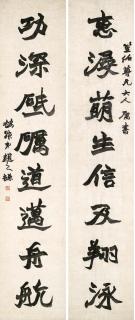 尊兄大人屬書
惠浸萌生信及翔泳
功深砥厲道邁舟航
撝叔弟趙之謙